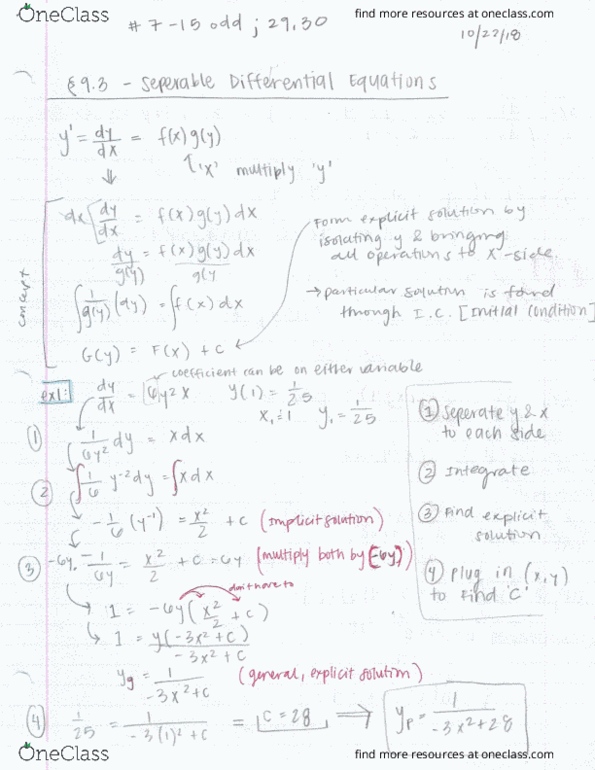 OneClass
find more resources at oneclass.com
# 7-15 odd ; 29.30
10/22/18
§9.3 - Seperable Differential Equations
y' = dy/dx = f(x)g(y)
'x' multiply 'y'
concept
dx [dy/dx = f(x)g(y)dx
dy/g(y) = f(x)g(y)dx/g(y
∫ 1/g(y) (dy) = ∫ f(x)dx
G(y) = F(x) + C
Form explicit solution by
isolating y & bringing
all operations to x-side
→ particular solution is found
through I.C. [Initial Condition]
coefficient can be on either variable
ex1: dy/dx = 6y²x y(1) = 1/25
x₁ = 1 y₁ = 1/25
① 1/6y² dy = xdx
② ∫ 1/6 y⁻² dy = ∫ xdx
-1/6 (y⁻¹) = x²/2 + C (Implicit solution)
③ -6y · -1/6y = x²/2 + C · -6y (multiply both by (-6y))
don't have to
1 = -6y(x²/2 + C)
1 = y(-3x² + C)/-3x² + C
yg = 1/-3x² + C (general, explicit solution)
④ 1/25 = 1/-3(1)² + C = C = 28 ⟹ yp = 1/-3x² + 28
① Seperate y & x
to each side
② Integrate
③ Find explicit
solution
④ Plug in (x,y)
to find 'C'
OneClass
find more resources at oneclass.com